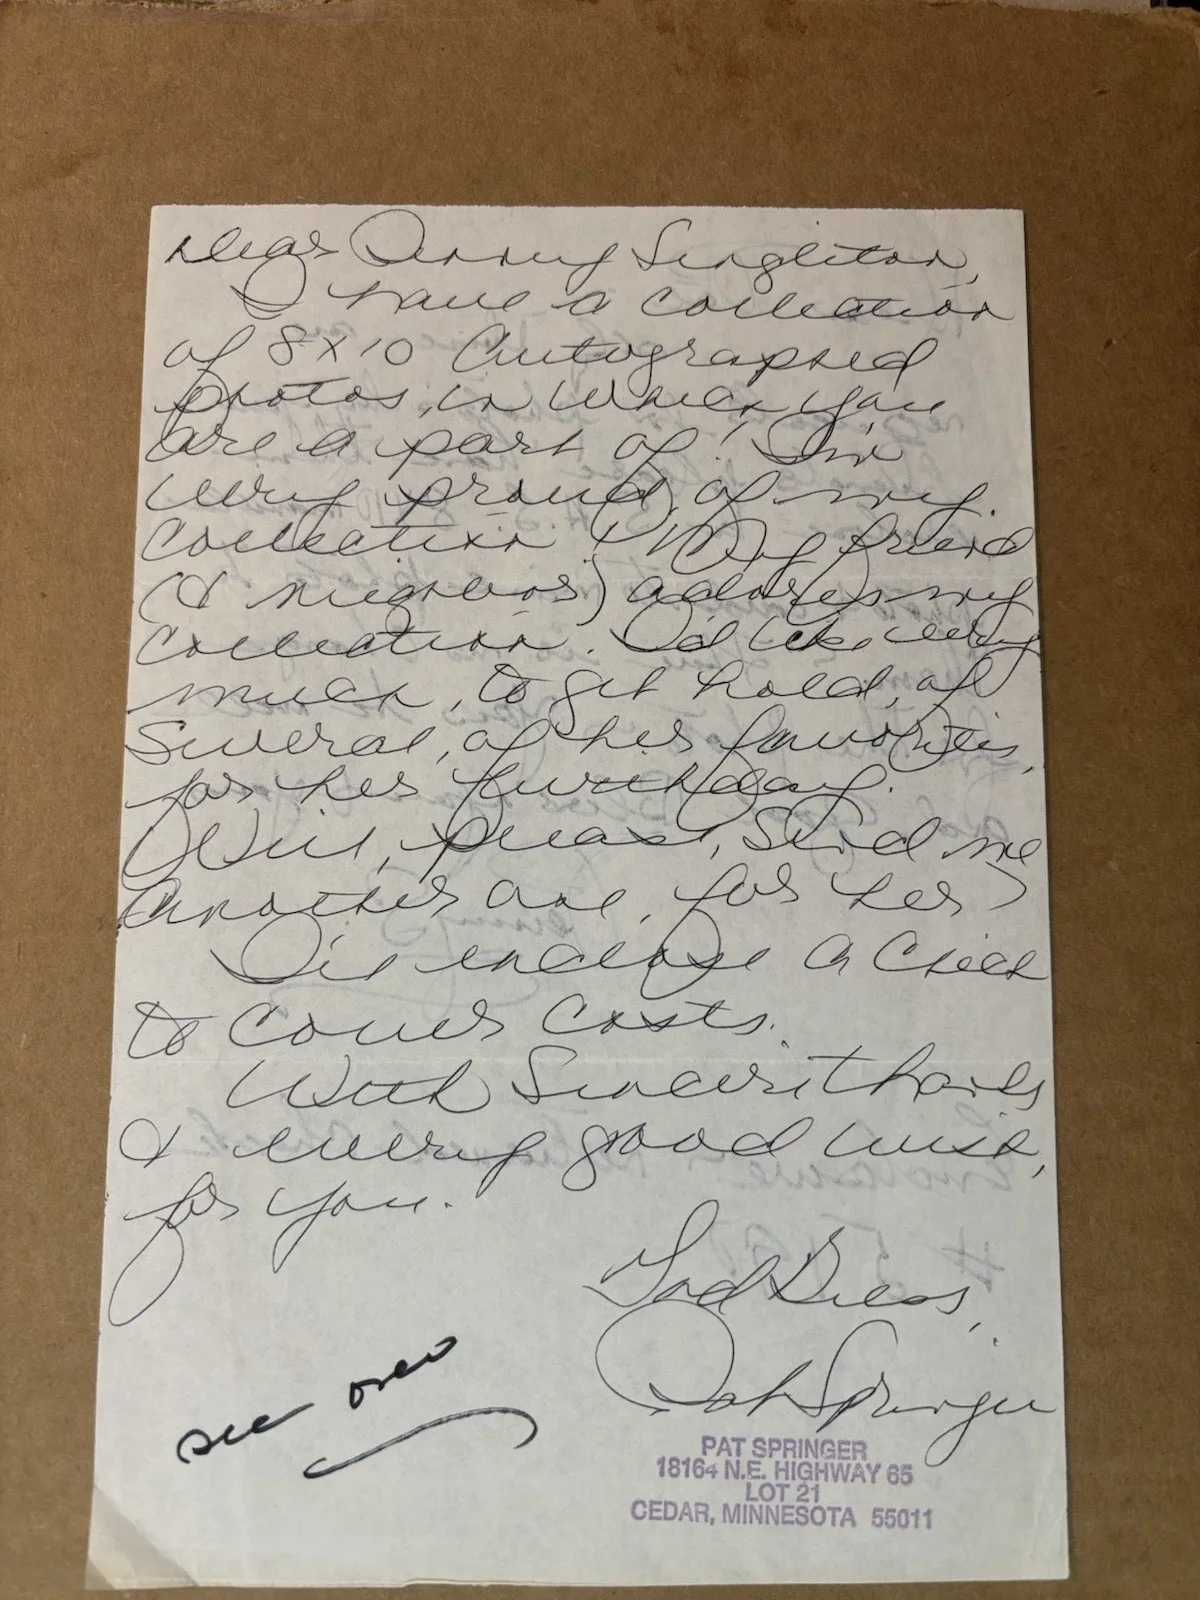 Dear Penny Singleton,
I have a collection
of 8x10 Autographed
photos, in which, you
are a part of! I'm
very proud, of my
collection & My friend
(& neighbor) adores my
collection. I'd like very
much, to get hold, of
several, of her favorites,
for her birthday.
Will, please, send me
another one, for her?
I'll enclose a check
to cover costs.
With Sincere thanks
& every good wish,
for you.
God Bless,
Pat Springer
see over
PAT SPRINGER
18164 N.E. HIGHWAY 65
LOT 21
CEDAR, MINNESOTA 55011